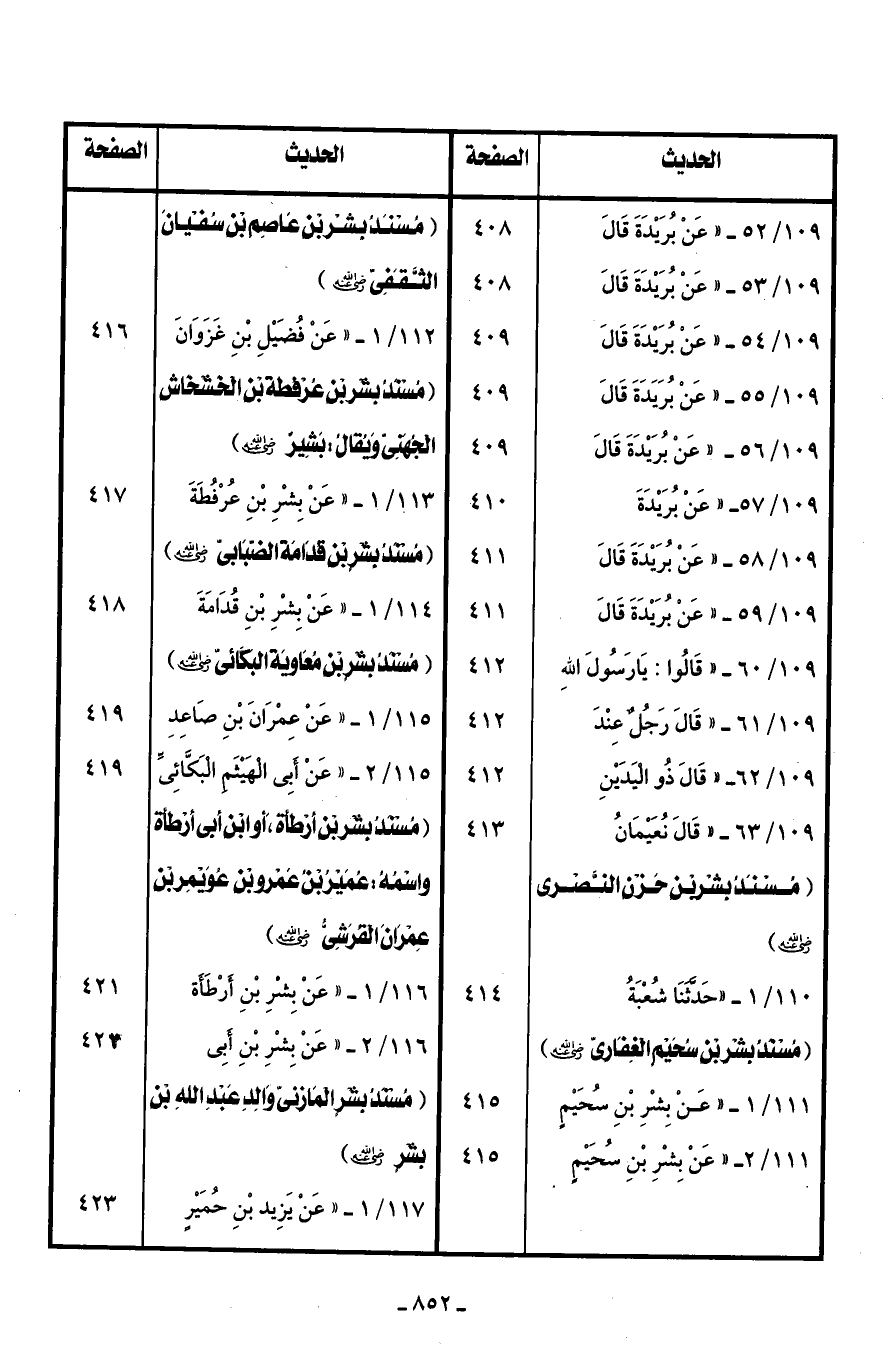 الحديث الصفحة
١٠٩/ ٥٢ ـ « عَنْ بُرَيْدَةَ قَالَ ٤٠٨
١٠٩/ ٥٣ ـ « عَنْ بُرَيْدَةَ قَالَ ٤٠٨
١٠٩/ ٥٤ ـ « عَنْ بُرَيْدَةَ قَالَ ٤٠٩
١٠٩/ ٥٥ ـ « عَنْ بُرَيَدَةَ قَالَ ٤٠٩
١٠٩/ ٥٦ ـ « عَنْ بُرَيْدَةَ قَالَ ٤٠٩
١٠٩/ ٥٧ـ « عَنْ بُرَيْدَةَ ٤١٠
١٠٩/ ٥٨ ـ « عَنْ بُرَيْدَةَ قَالَ ٤١١
١٠٩/ ٥٩ ـ « عَنْ بُرَيْدَةَ قَالَ ٤١١
١٠٩/ ٦٠ ـ « قَالُوا : يَارَسُولَ اللهِ ٤١٢
١٠٩/ ٦١ ـ « قَالَ رَجُلٌ عِنْدَ ٤١٢
١٠٩/ ٦٢ـ « قَالَ ذُو الْيَدَيْنِ ٤١٢
١٠٩/ ٦٣ ـ « قَالَ نُعَيْمَانُ ٤١٣
( مُسْنَدُ بشْرِ بْنِ حَزْنِ النَّصْرى
رضي الله عنه)
١١٠/ ١ ـ «حَدَّثَنَا شُعْبَةُ ٤١٤
(مُسْنَدُ بشْرِ بْنِ سُحَيْمِ الغِفَارىّ رضي الله عنه)
١١١/ ١ ـ « عَـنْ بِشْرِ بْنِ سُحَيْمٍ ٤١٥
١١١/ ٢ـ « عَنْ بِشْرِ بْنِ سُحَيْمٍ ٤١٥
الحديث الصفحة
( مُسْنَدُ بشْرِ بْنِ عَاصِم بْنِ سُفْيَانَ
الثَّقَفِىّ رضي الله عنه )
١١٢/ ١ ـ « عَنْ فُضَيْلِ بْنِ غَزَوَانَ ٤١٦
(مُسْنَدُ بشْرِ بْنِ عُرْفطة بْنِ الخَشْخَاش
الجُهَنىّ وَيُقَالُ : بَشِيرٌ رضي الله عنه)
١١٣/ ١ ـ « عَنْ بِشْرِ بْنِ عُرْفُطَةَ ٤١٧
(مُسْنَدُ بشْرِ بْنِ قدَامَة الضبَابىّ رضي الله عنه)
١١٤/ ١ ـ « عَنْ بِشْرِ بْنِ قُدَامَةَ ٤١٨
( مُسْنَدُ بشْرِ بْنِ مُعَاوِيَة البَكَّائىّ رضي الله عنه)
١١٥/ ١ ـ « عَنْ عِمْرَانَ بْنِ صَاعِدِ ٤١٩
١١٥/ ٢ ـ « عَنْ أَبِى الْهَيْثَمِ الْبَكَّائِىِّ ٤١٩
(مُسْنَدُ بشْرِ بْنِ أَرْطَأة ،أو ابْن أبى أَرْطَأة
واسْمُهُ : عُمَيْرُ بْنُ عَمْرو بْنِ عُوَيْمِر بْنِ
عِمْرَانَ القَرَشِىُّ رضي الله عنه)
١١٦/ ١ ـ « عَنْ بِشْرِ بْنِ أَرْطَأَةَ ٤٢١
١١٦/ ٢ ـ « عَنْ بِشْرِ بْنِ أَبِى
( مُسْنَدُ بشْرِ المَازنىّ وَالِدِ عَبْدِ اللهِ بْنِ
بشْرِ رضي الله عنه)
١١٧/ ١ ـ « عَنْ يَزِيد بْنِ حُمَيْرٍ ٤٢٣
ـ ٨٥٢ ـ